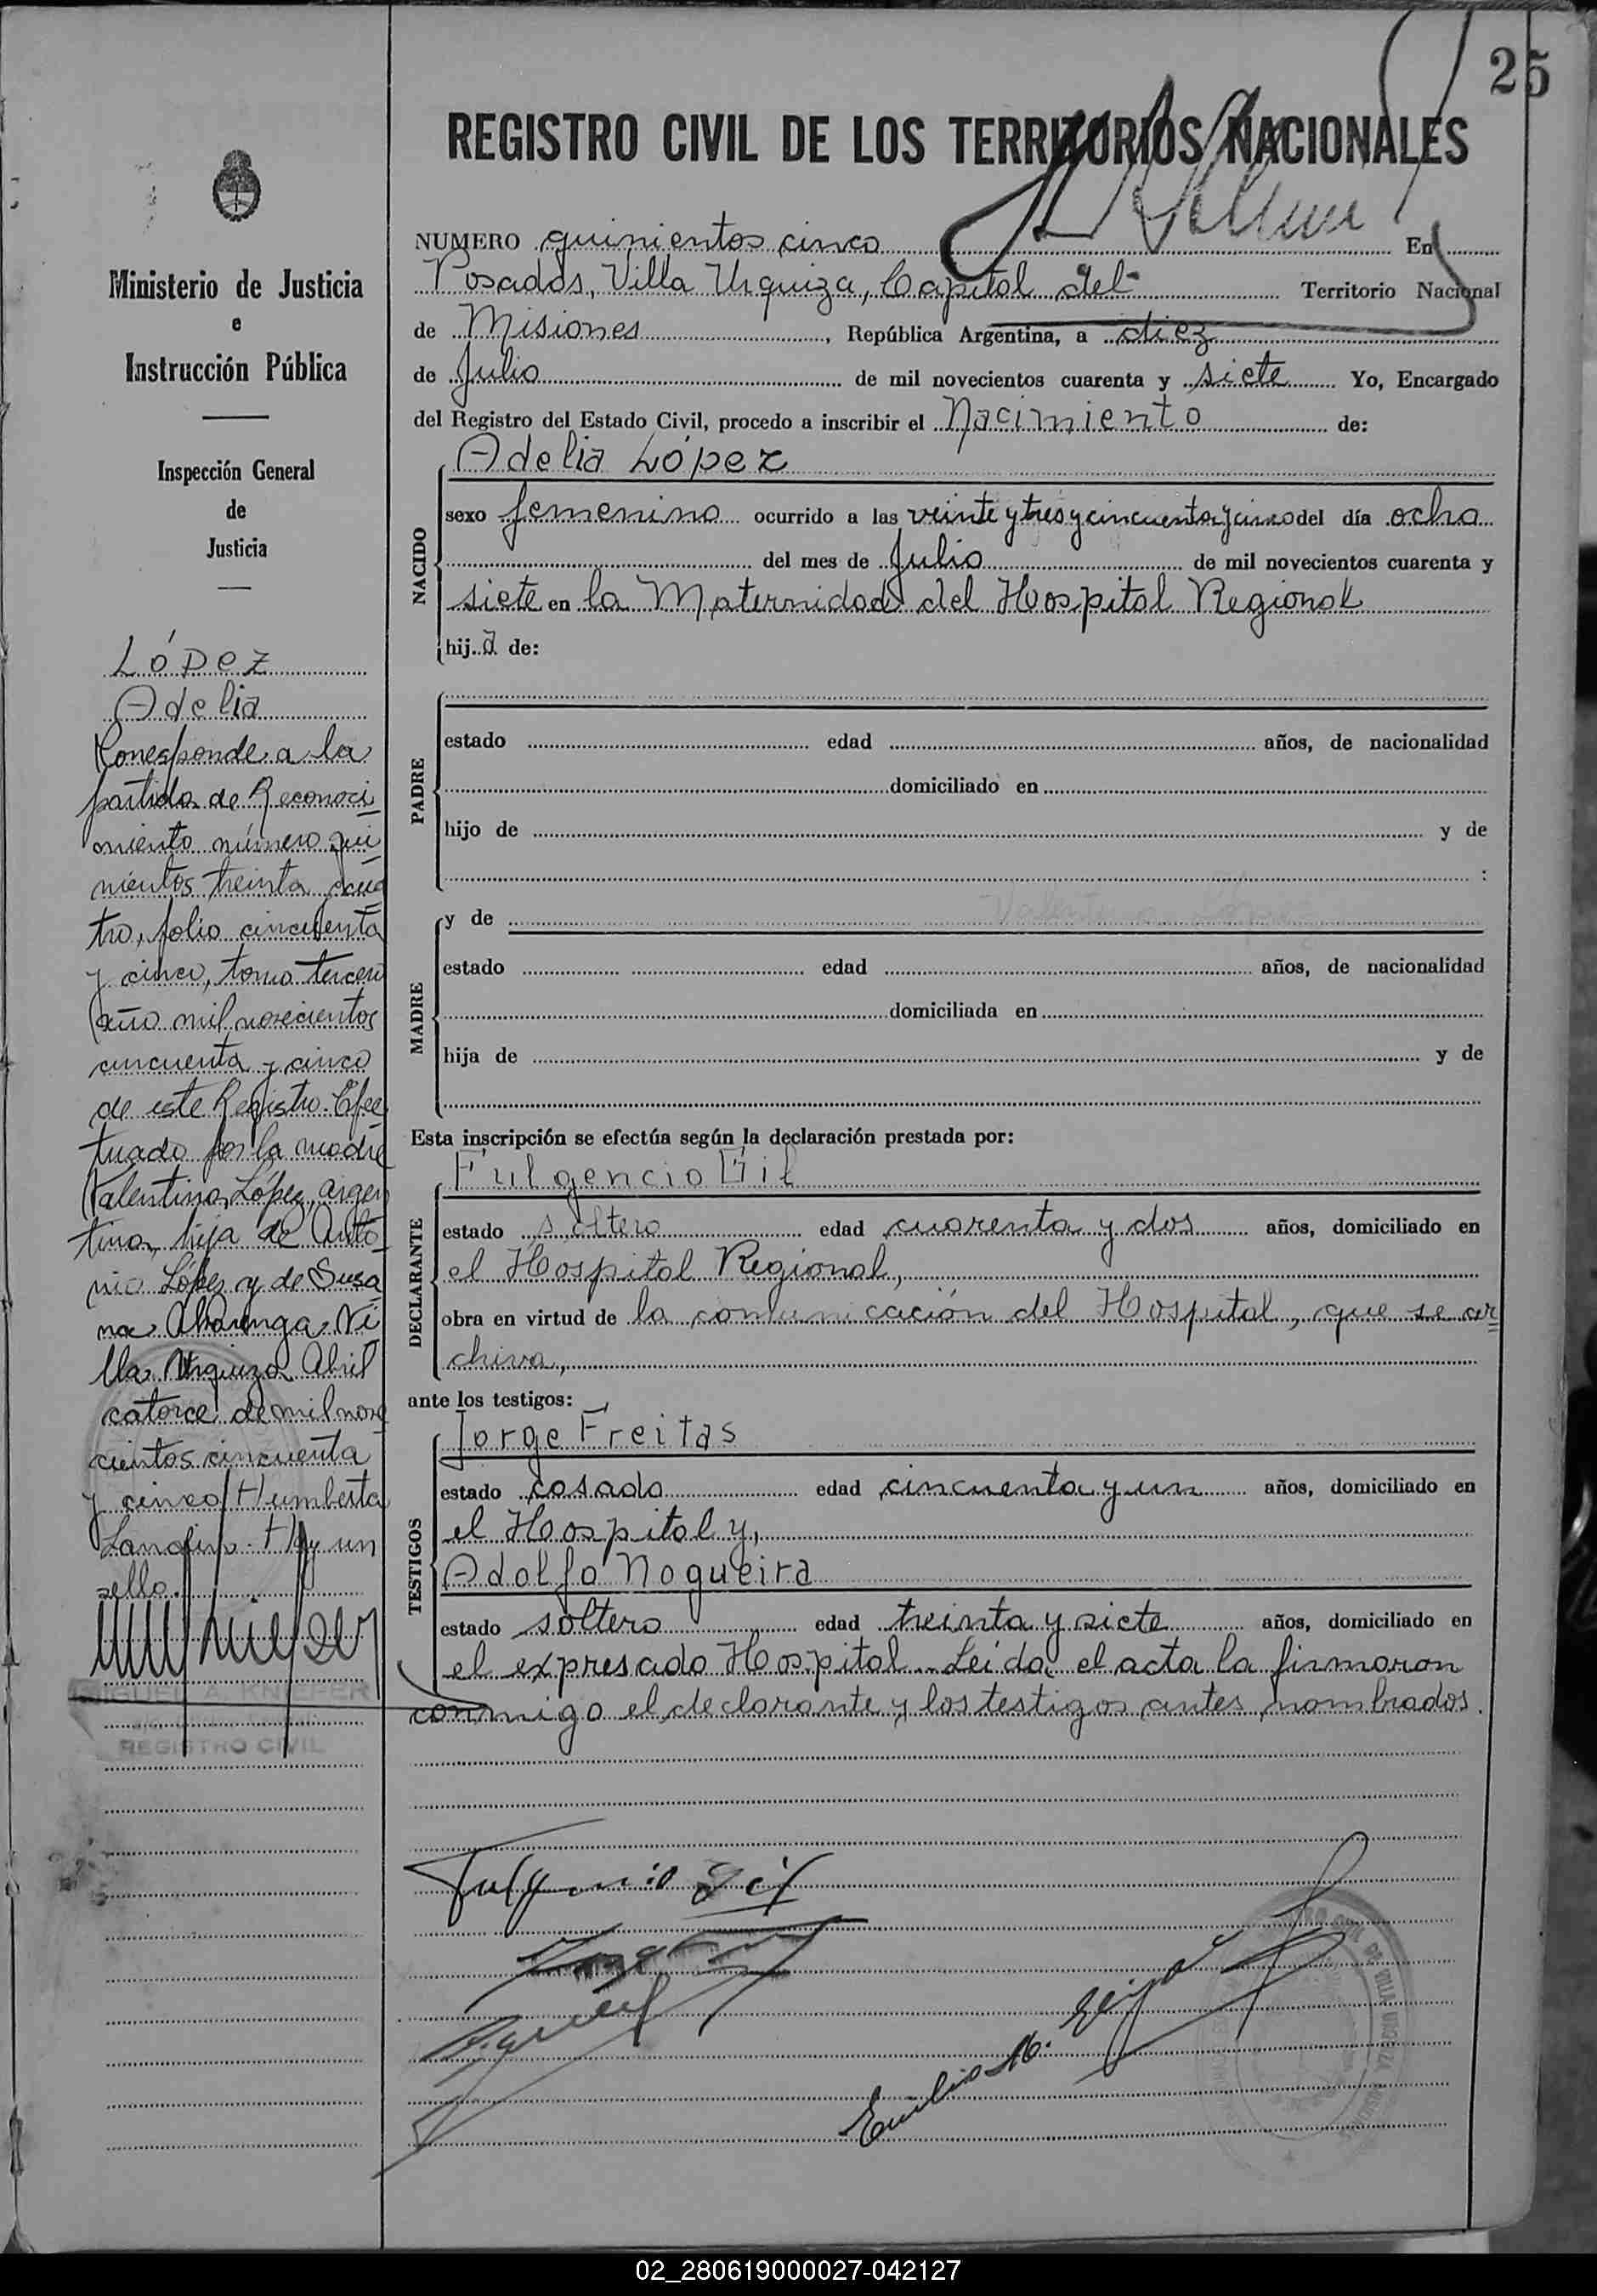 25
REGISTRO CIVIL DE LOS TERRITORIOS NACIONALES
Ministerio de Justicia
e
Instrucción Pública
Inspección General
de
Justicia
López
Adelia
Corresponde a la
partida de Reconoci
miento número qui
nientos treinta y cua
tro, folio cincuenta
y cinco, tomo tercero
año mil novecientos
cincuenta y cinco
de este Registro. Efec
tuado por la madre
Valentina López, argen
tina, hija de Anto
nio López y de Susa
na Alvarenga. Vi
lla Urquiza Abril
catorce de mil nove
cientos cincuenta
y cinco
Hay un
sello.
MIGUEL A. KNIEFER
REGISTRO CIVIL
NUMERO quinientos cinco En
Posadas, Villa Urquiza, Capital del Territorio Nacional
de Misiones, República Argentina, a diez
de Julio de mil novecientos cuarenta y siete Yo, Encargado
del Registro del Estado Civil, procedo a inscribir el Nacimiento de:
NACIDO
Adelia López
sexo femenino ocurrido a las veinte y tres y cincuenta y cinco del día ocho
del mes de Julio de mil novecientos cuarenta y
siete en la Maternidad del Hospital Regional
hija de:
PADRE
estado edad años, de nacionalidad
domiciliado en
hijo de y de
:
MADRE
y de Valentina López
estado edad años, de nacionalidad
domiciliada en
hija de y de
Esta inscripción se efectúa según la declaración prestada por:
DECLARANTE
Fulgencio Gil
estado soltero edad cuarenta y dos años, domiciliado en
el Hospital Regional,
obra en virtud de la comunicación del Hospital, que se ar
chiva,
ante los testigos:
TESTIGOS
Jorge Freitas
estado casado edad cincuenta y un años, domiciliado en
el Hospital y,
Adolfo Nogueira
estado soltero edad treinta y siete años, domiciliado en
el expresado Hospital. Leída el acta la firmaron
conmigo el declarante y los testigos antes nombrados.
Fulgencio Gil
Emilio M.
02_280619000027-042127